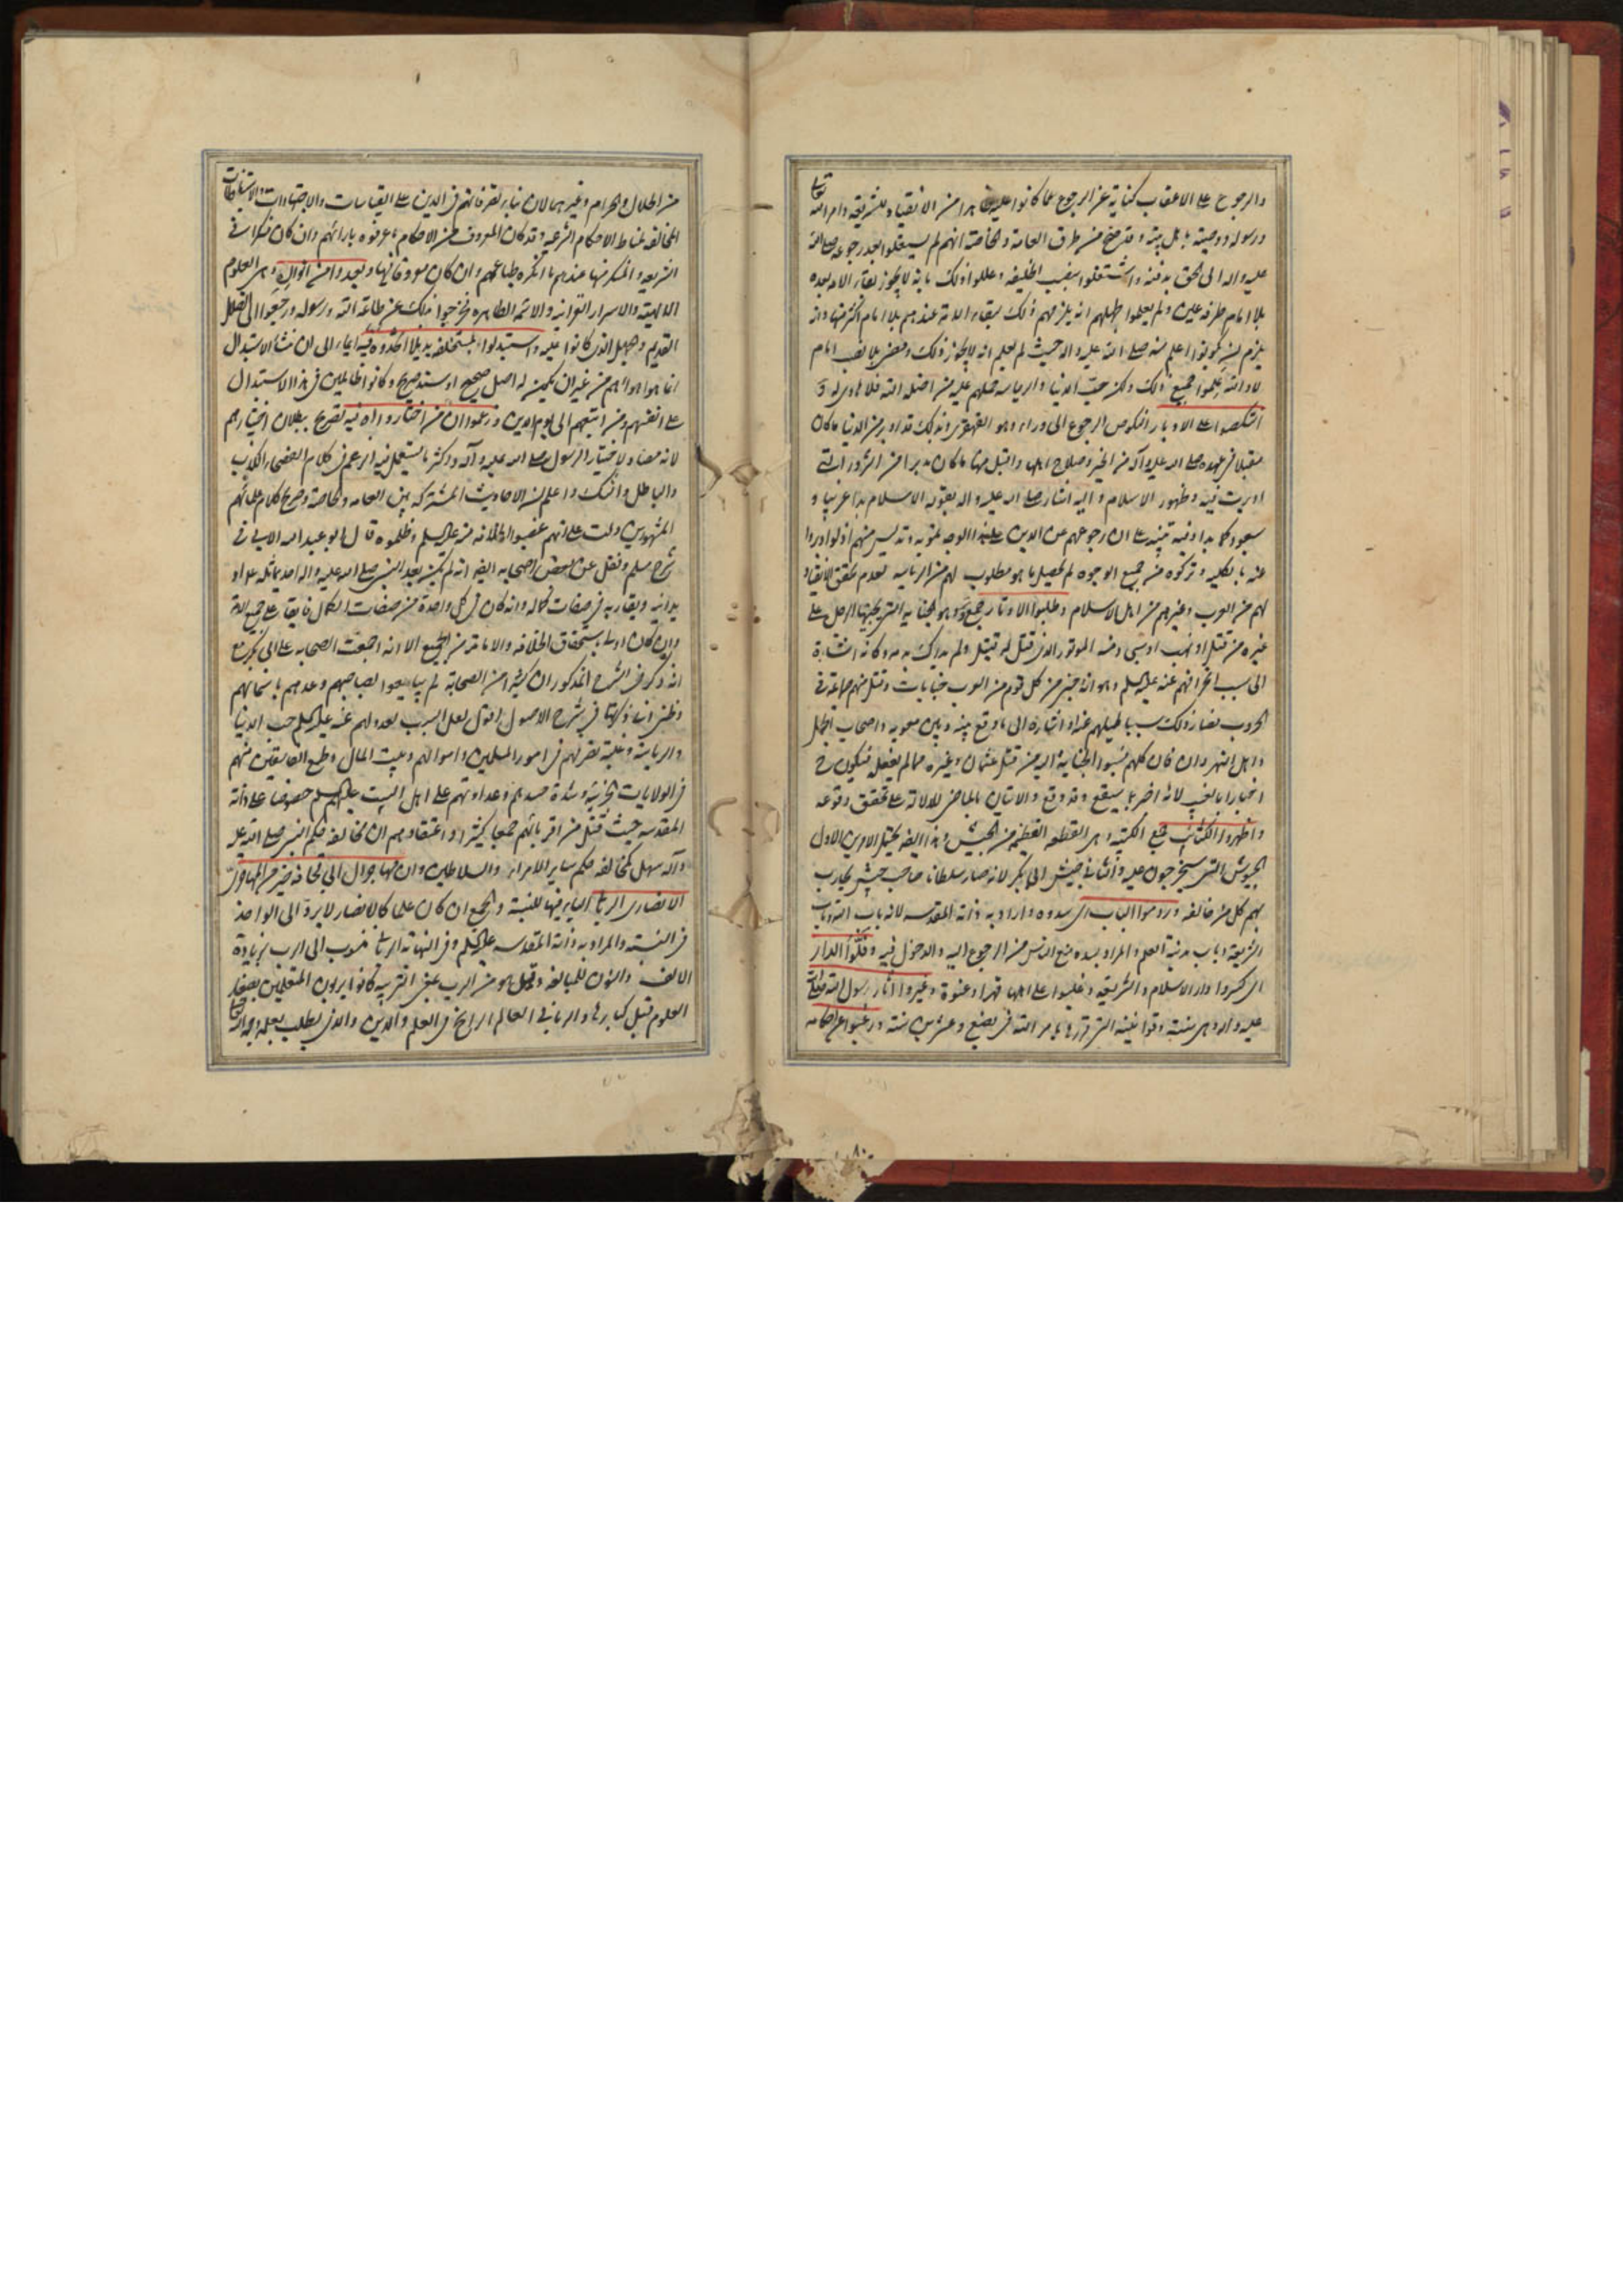 والرجوع على الاعقاب كناية عن الرجوع عما كانوا عليه ظاهرا من الانقياد للشريعة وامر الله تعالى
ورسوله ووصيته باهل بيته وقد صح من طرق العامة والخاصة انهم لم يشتغلوا بعد رجوعه صلى الله
عليه واله الى الحق بدفنه واشتغلوا بنصب الخليفة وعللوا ذلك بانه لا يجوز بقاء الامة بعده
بلا امام طرفة عين ولم يعلموا لجهلهم انه يلزمهم ذلك ببقاء الامة عندهم بلا امام اكثر منها وانه
يلزم ان يكونوا اعلم منه صلى الله عليه واله حيث لم يعلم انه لا يجوز ذلك ومضى بلا نصب امام
لا والله علموا جميع ذلك ولكن حب الدنيا والرياسة حملهم عليه من اضله الله فلا هادي له و
انتكصوا على الادبار النكوص الرجوع الى وراء وهو القهقرى وبذلك قد ادبر من الدنيا ما كان
مقبلا في عهده صلى الله عليه وآله من الخير وصلاح اهلها واقبل منها ما كان مدبرا من الشرور التي
ادبرت فيه وظهور الاسلام واليه اشار صلى الله عليه واله بقوله الاسلام بدا غريبا و
سيعود كما بدا وفيه تنبيه على ان رجوعهم عن الدين على هذا الوجه لتمويه وتدليس منهم اذ لو ادبروا
عنه بالكلية وتركوه من جميع الوجوه لم يحصل ما هو مطلوب لهم من الرياسة لعدم تحقق الانقياد
لهم من العرب وغيرهم من اهل الاسلام وطلبوا الاوتار جمع وتر وهو الجناية التي يجنيها الرجل على
غيره من قتل او نهب او سبي ومنه الموتور الذي قتل له قتيل ولم يدرك بدمه وكانه اشارة
الى سبب انحرافهم عنه عليه السلم وهو انه جنى من كل قوم من العرب جنايات وقتل منهم جماعة في
الحروب فصار ذلك سببا لميلهم عنه او اشارة الى ما وقع بينه وبين معوية واصحاب الجمل
واهل النهروان فان كلهم نسبوا الجناية اليه من قتل عثمان وغيره مما لم يفعل فيكون ح
اخبارا بالغيب لانه اخبر بما سيقع وقد وقع والاتيان بالماضي للدلالة على تحقق وقوعه
واظهروا الكتائب جمع الكتيبة وهي القطعة العظيمة من الجيش وهذا ايضا يحتمل الامرين الاول
الجيوش التي سيخرجون عليه والثاني جيش ابي بكر لانه صار سلطانا صاحب جيش يحارب
بهم كل من خالفه وردموا الباب اي سدوه واراد به ذاته المقدسة لانه باب الله وباب
الشريعة وباب مدينة العلم والمراد بسده منع الناس من الرجوع اليه والدخول فيه وفلوا الدار
اي كسروا دار الاسلام والشريعة وغلبوا على اهلها قهرا وعنوة وغيروا اثار رسول الله صلى الله
عليه واله وهي سننه وقوانينه التي قررها بامر الله في بضع وعشرين سنة ورغبوا عن احكامه
٨٠
من الحلال والحرام وغيرهما لان بناء تصرفاتهم في الدين على القياسات والاجتهادات والاستنباطات
المخالفة لمناط الاحكام الشرعية وقد كان المعروف من الاحكام ما عرفوه بارائهم وان كان منكرا في
الشريعة والمنكر منها عندهم ما انكره طباعهم وان كان معروفا فيها وبعدوا من انواره وهي العلوم
الالهية والاسرار القرانية والائمة الطاهرة فخرجوا بذلك عن طاعة الله ورسوله ورجعوا الى الضلال
القديم وجهل الذي كانوا عليه واستبدلوا بمستخلفه بديلا اتخذوه فيه ايماء الى ان منشأ الاستبدال
انما هو اهوائهم من غير ان يكون له اصل صحيح او سند صريح وكانوا ظالمين في هذا الاستبدال
على انفسهم ومن اتبعهم الى يوم الدين وزعموا ان من اختاروا اه فيه تصريح ببطلان اختيارهم
لانه مضاد لاختيار الرسول صلى الله عليه وآله واكثر ما يستعمل فيه الزعم في كلام الفصحاء الكذب
والباطل والشك واعلم ان الاحاديث المشتركة بين العامة والخاصة وصريح كلام علمائهم
المشهورين دلت على انهم غصبوا الخلافة منه عليه السلم وظلموه قال ابو عبد الله الابي في
شرح مسلم ونقل عن بعض اصحابه ايضا انه لم يكن بعد النبي صلى الله عليه واله احد يماثله علما او
يدانيه ويقاربه في صفات كماله وانه كان في كل واحدة من صفات الكمال فايقا على جميع الامة
وانه كان اولى باستحقاق الخلافة والامامة من الجميع الا انه اجمعت الصحابة على ابي بكر مع
انه ذكر في الشرح المذكور ان كثيرا من الصحابة لم يبايعوا لصاحبهم وعدهم باسمائهم
وظني انا ذكرتها في شرح الاصول اقول لعل السبب لعدولهم عنه عليه السلم حب الدنيا
والرياسة وغلبة تصرفهم في امور المسلمين واموالهم وبيت المال وطمع الفاسقين منهم
في الولايات الجزئية وشدة حسدهم وعداوتهم على اهل البيت عليهم السلم خصوصا على ذاته
المقدسة حيث قتل من اقربائهم جمعا كثيرا او اعتقادهم ان مخالفة حكم النبي صلى الله عليه
وآله سهل كمخالفة حكم ساير الامراء والسلاطين وان مهاجر ال ابي قحافة خير من المهاجر
الانصاري الرباني الياء فيها للنسبة والجمع ان كان علما كالانصار لا يرد الى الواحد
في النسبة والمراد به ذاته المقدسة عليه السلم وفي النهاية الرباني منسوب الى الرب بزيادة
الالف والنون للمبالغة وقيل هو من الرب بمعنى التربية كانوا يربون المتعلمين بصغار
العلوم قبل كبارها والرباني العالم الراسخ في العلم والدين والذي يطلب بعلمه وجه الله